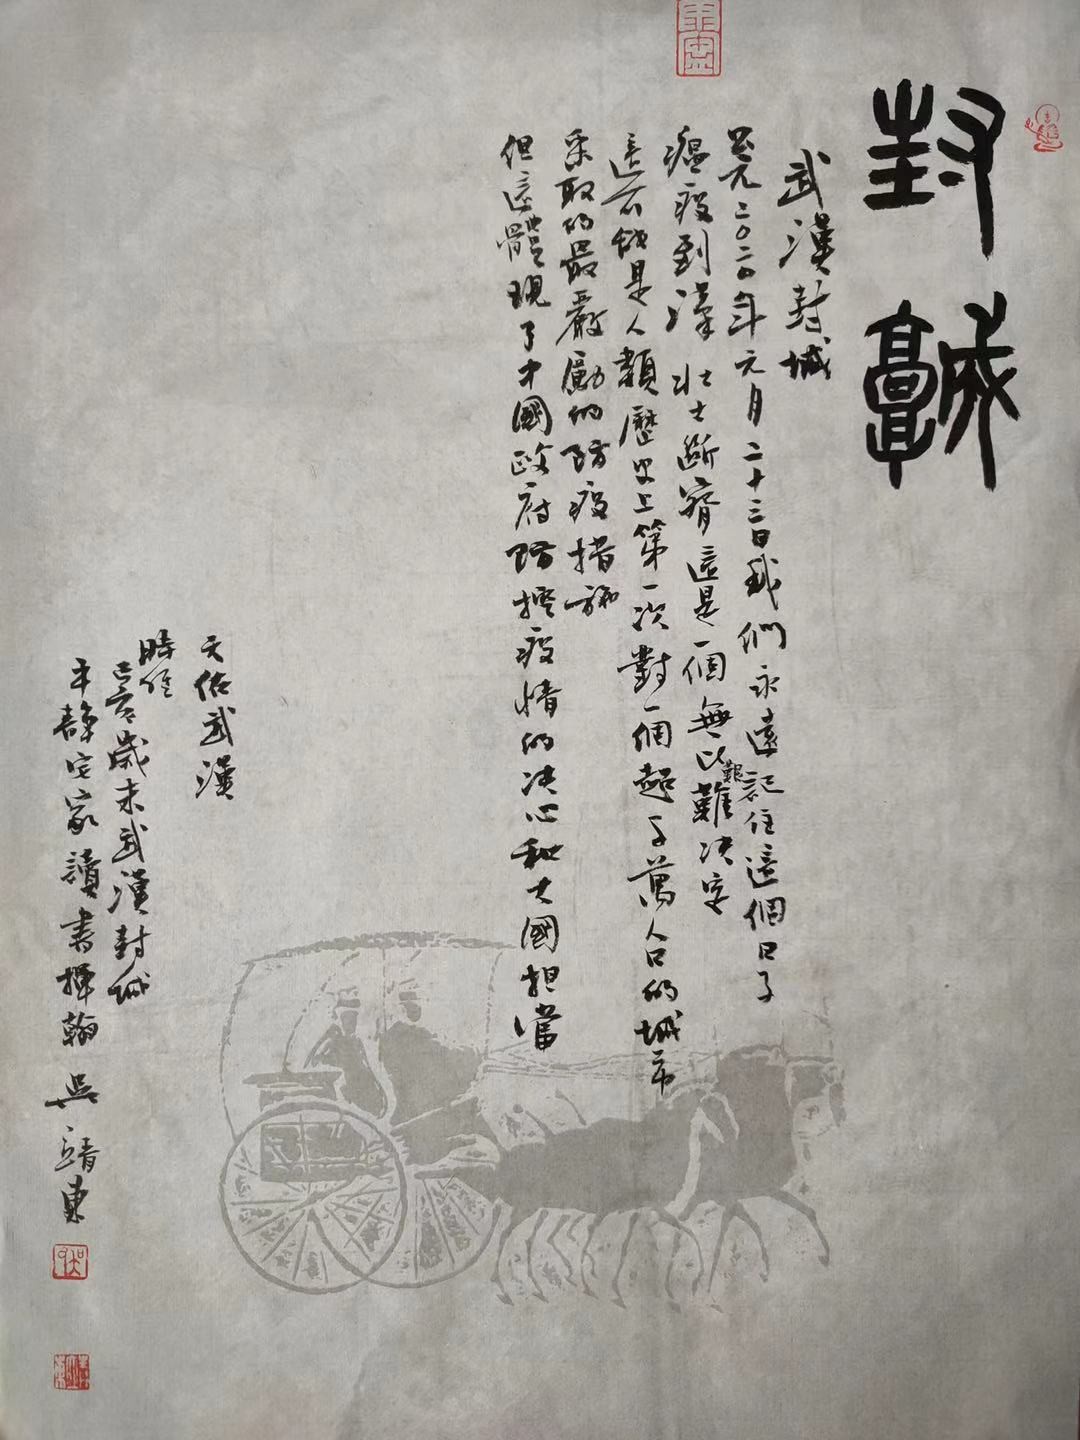 封城
武漢封城
公元二〇二〇年元月二十三日我們永遠記住這個日子
瘟疫到漢 壯士斷臂 這是一個無以艱難决定
這可能是人類歷史上第一次對一個超千萬人口的城市
采取的最嚴勵的防疫措施
但這體現了中國政府防控疫情的决心和大國担當
天佑武漢
時值
己亥歲末武漢封城
平靜宅家讀書揮翰 吳靖東